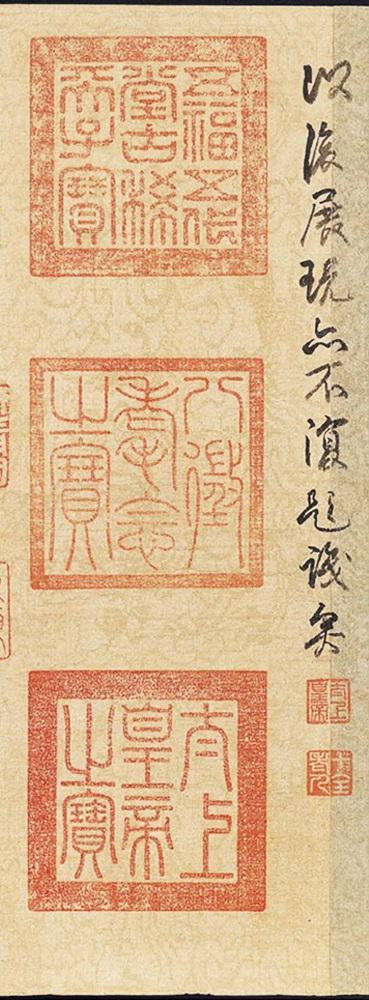 以後展玩亦不復題識矣
太上皇帝
十全老人
五福五代堂古稀天子寶
八徵耄念之寶
太上皇帝之寶